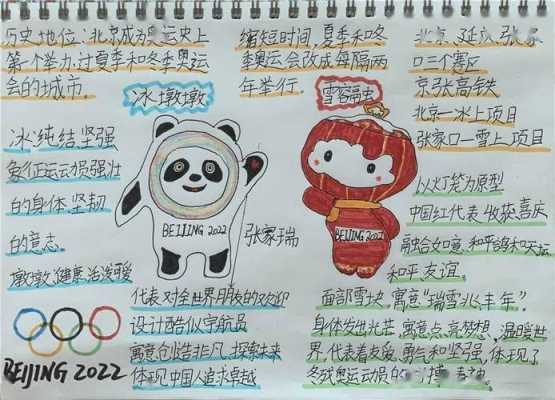 历史地位：北京成为奥运史上
第一个举办过夏季和冬季奥运
会的城市.
缩短时间，夏季和冬
季奥运会改成每隔两
年举行.
北京、延庆、张家
口三个赛区
京张高铁
北京一冰上项目
张家口一雪上项目
冰墩墩
雪容融
冰:纯结坚强
象征运动员强壮
的身体.坚韧
的意志.
墩墩:健康.活泼可爱
BEIJING 2022
张家瑞
代表对全世界朋友的欢迎
设计酷似宇航员
寓意创造非凡.探索未来
体现中国人追求卓越
BEIJING 2022
BEIJING 2022
以灯笼为原型
中国红代表收获.喜庆
融合如意.和平鸽和天坛
和平友谊.
面部雪块,寓意"瑞雪兆丰年".
身体发出光芒,寓意点亮梦想,温暖世
界,代表着友爱.勇气和坚强,体现了
冬残奥运动员的拼搏精神.